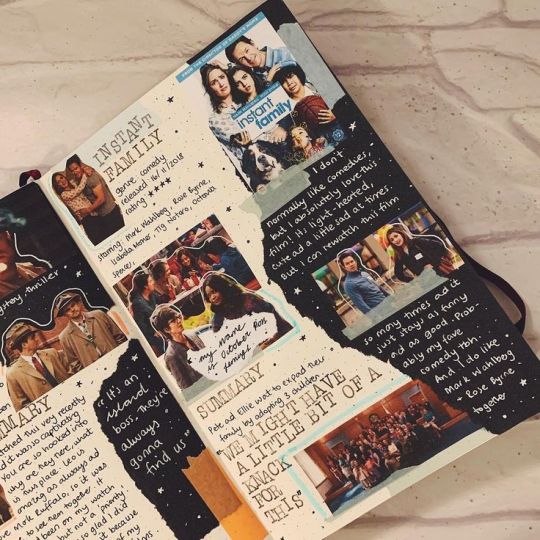 FROM THE DIRECTOR OF DADDY'S HOME
instant
family
INSTANT
FAMILY
genre: comedy
released: 16/11/2018
rating: ★★★★
starring: Mark Wahlberg, Rose Byrne,
Isabela Moner, Tig Notaro, Octavia
Spencer
I don't
normally like comedies,
but I absolutely love this
film! It's light-hearted,
cute ad a little sad at times
But I can rewatch this film
so many times ad it
just stays as funny
ad as good. Prob-
ably my fave
comedy tbh.
And I do like
Mark Wahlbog
Rose Byrne
together
my name
is
SUMMARY
Pete ad Ellie wat to expad their
family by adopting 3 children
"WE MIGHT HAVE
A LITTLE BIT OF A
KNACK
FOR
THIS"
mystery, thriller
"It's an
island
boss, They're
always
gonna
find us"
SUMMARY
watched this very recently
ad it was so captivating
You are so hooked into
why are they here, what
is this place. Leo is
amazing as always ad
love Mark Ruffalo, so it was
to see them together. It
been on my watch
but not a priority
so glad I did
it because
of my